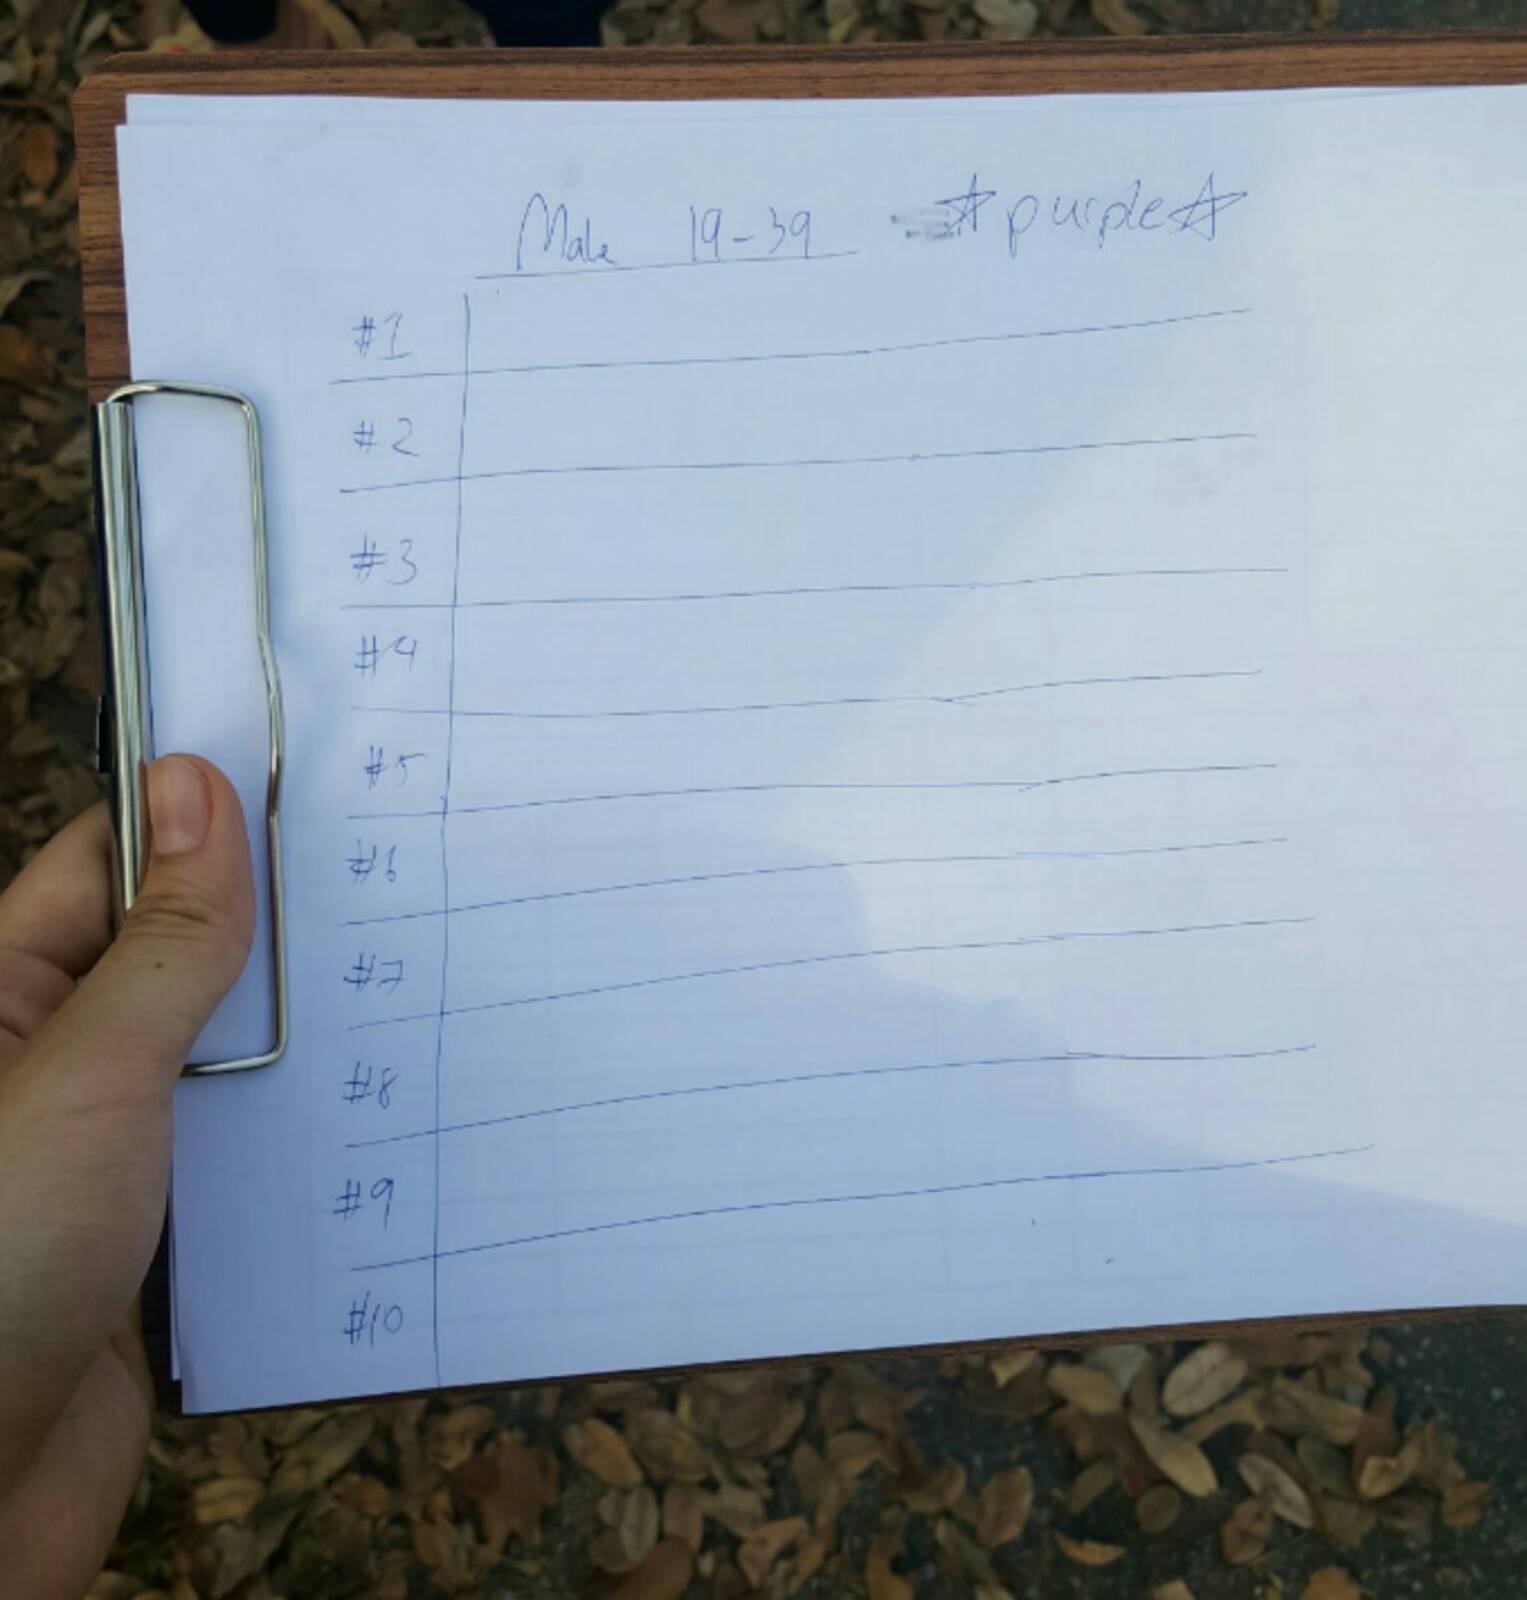 Male 19-39 ☆purple☆
#1
#2
#3
#4
#5
#6
#7
#8
#9
#10